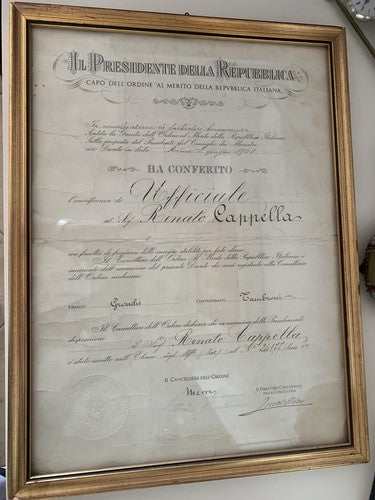 IL PRESIDENTE DELLA REPUBBLICA
CAPO DELL'ORDINE "AL MERITO DELLA REPVBBLICA ITALIANA
In considerazione di particolari benemerenze
Sentita la Giunta dell'Ordine al Merito della Repubblica Italiana
Sulla proposta del Presidente del Consiglio dei Ministri
con Decreto in data Roma 2 giugno 1960
HA CONFERITO
l'onorificenza di Ufficiale
al Sig. Renato Cappella
con facoltà di fregiarsi delle insegne stabilite per tale classe
Il Cancelliere dell'Ordine Al Merito della Repubblica Italiana è
incaricato dell'esecuzione del presente Decreto che sarà registrato alla Cancelleria
dell'Ordine medesimo
FIRMATO Gronchi CONTROFIRMATO Tambroni
Il Cancelliere dell'Ordine dichiara che in esecuzione delle Sovraindicate
disposizioni il Sig. Renato Cappella
è stato iscritto nell'Elenco degli Uff. (Naz.) al N.° Serie
IL CANCELLIERE DELL'ORDINE
IL DIRETTORE CAPO UFFICIO
DELLA CANCELLERIA